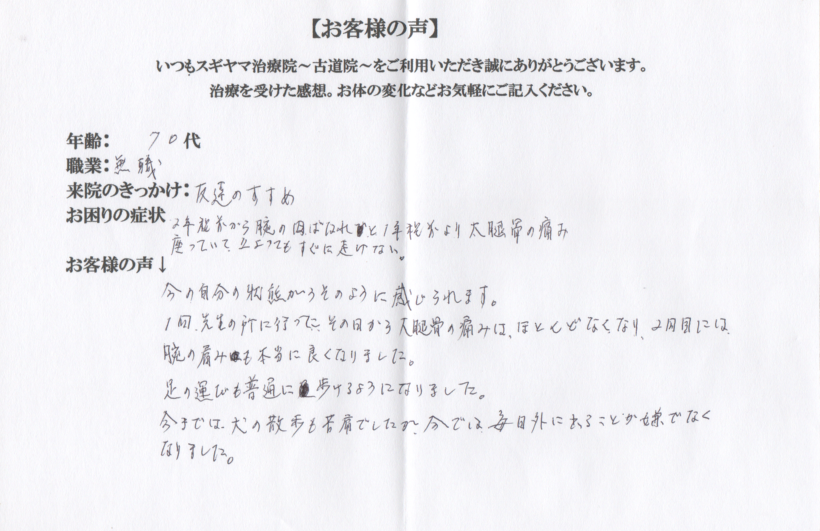 【お客様の声】
いつもスギヤマ治療院～古道院～をご利用いただき誠にありがとうございます。
治療を受けた感想。お体の変化などお気軽にご記入ください。
年齢： 70代
職業：無職
来院のきっかけ：友達のすすめ
お困りの症状 2年程前から腕の肉ばなれと1年程前より大腿骨の痛み
座っていて立とうてもすぐに走けない。
お客様の声↓
今の自分の状態がうそのように感じられます。
1回、先生の所に行って、その日から大腿骨の痛みは、ほとんどなくなり、2回目には
腕の痛みも本当に良くなりました。
足の運びも普通に歩けるようになりました。
今までは、犬の散歩も苦痛でしたが、今では、毎日外に出ることが嫌でなく
なりました。